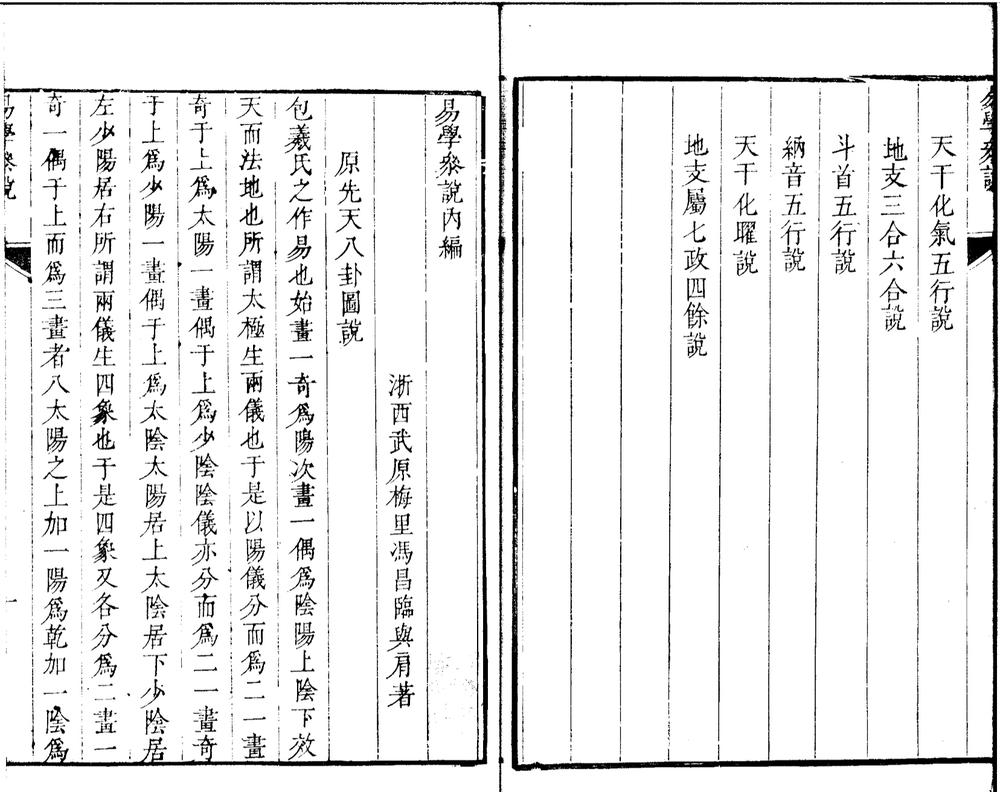 易學參說
天干化氣五行說
地支三合六合說
斗首五行說
納音五行說
天干化曜說
地支屬七政四餘說
易學參說內編
浙西武原梅里馮昌臨與肩著
原先天八卦圖說
包羲氏之作易也始畫一奇爲陽次畫一偶爲陰陽上陰下效
天而法地也所謂太極生兩儀也于是以陽儀分而爲二一畫
奇于上爲太陽一畫偶于上爲少陰陰儀亦分而爲二一畫奇
于上爲少陽一畫偶于上爲太陰太陽居上太陰居下少陰居
左少陽居右所謂兩儀生四象也于是四象又各分爲二畫一
奇一偶于上而爲三畫者八太陽之上加一陽爲乾加一陰爲
易學參說
一